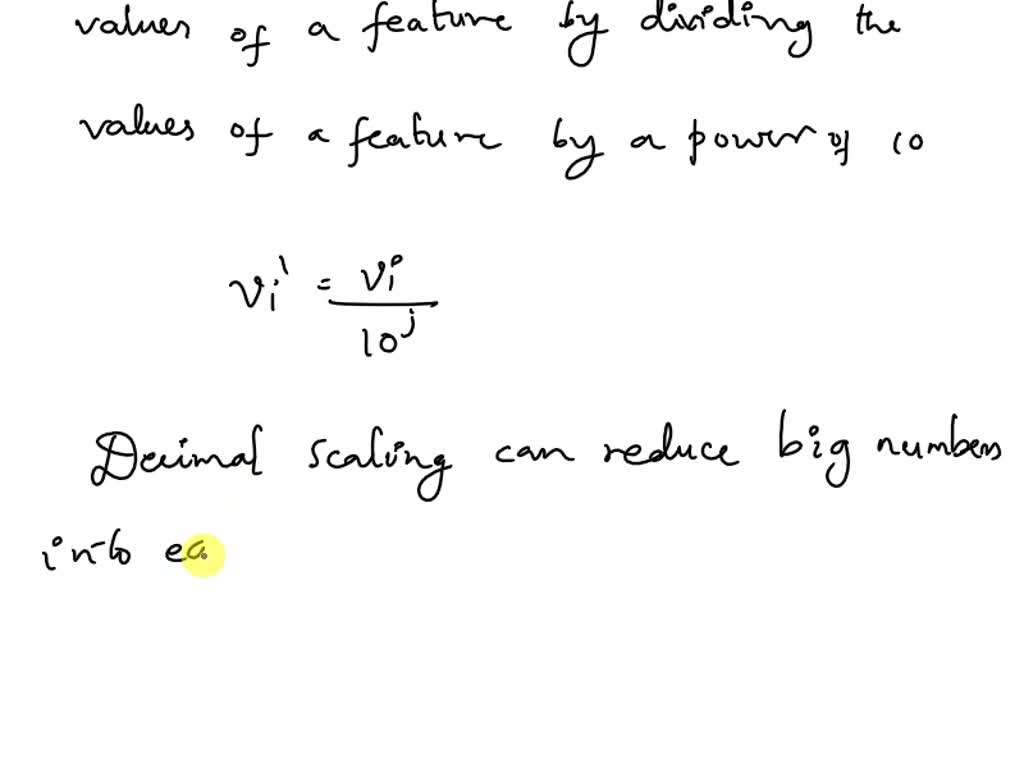 values of a feature by dividing the
values of a feature by a power of 10
vi' = vi / 10^j
Decimal scaling can reduce big numbers
into ea